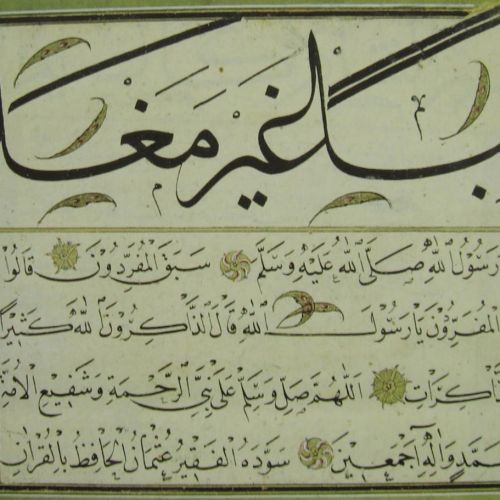 لغير
رَسُولُ اللّٰهِ صَلَّى اللّٰهُ عَلَيْهِ وَسَلَّمَ سَبَقَ الْمُفَرِّدُونَ قَالُوا
الْمُفَرِّدُونَ يَا رَسُولَ اللّٰهِ قَالَ الذَّاكِرُونَ اللّٰهَ كَثِيرًا
اَللّٰهُمَّ صَلِّ وَسَلِّمْ عَلٰى نَبِيِّ الرَّحْمَةِ وَشَفِيعِ الْاُمَّةِ
وَاٰلِهِ اَجْمَعِينَ سَوَّدَهُ الْفَقِيرُ عُثْمَانُ الْحَافِظُ بِالْقُرْاٰنِ